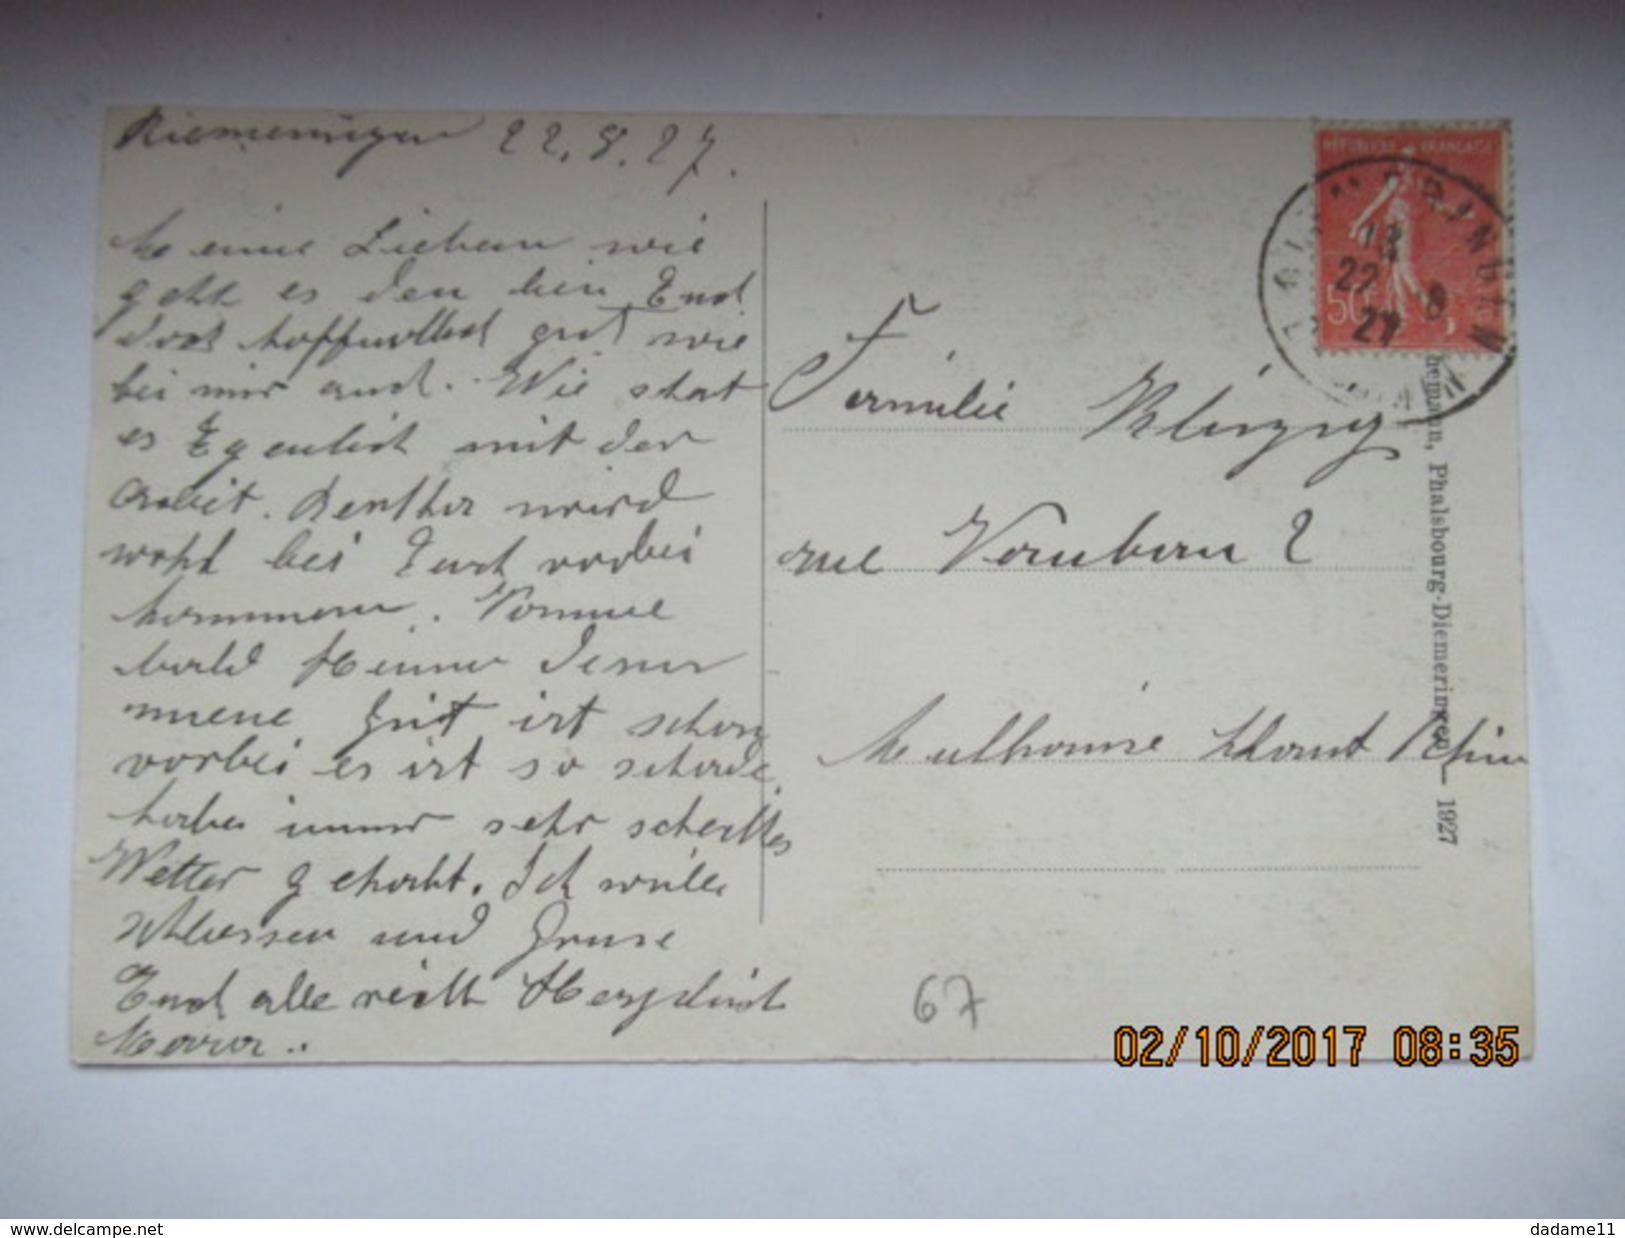 22.8.27.
Meine Lieben wie
geht es den bei Euch
doch hoffendlich gut wie
bei mir auch. Wie steht
es Egenlich mit der
Arbeit. wird
wohl bei Euch vorbei
kommen. Komme
bald
meine Zeit ist schon
vorbei es ist so schade
habe immer sehr schlechtes
Wetter gehabt. Ich will
schliessen und Gruse
Euch alle recht Herzlich
Maria.
Familie
rue Vauban 2
Mulhouse Haut Rhin
67
RÉPUBLIQUE FRANÇAISE
50
22 8
27
hemann, Phalsbourg-Diemeringen — 1927
02/10/2017 08:35
www.delcampe.net
dadame11